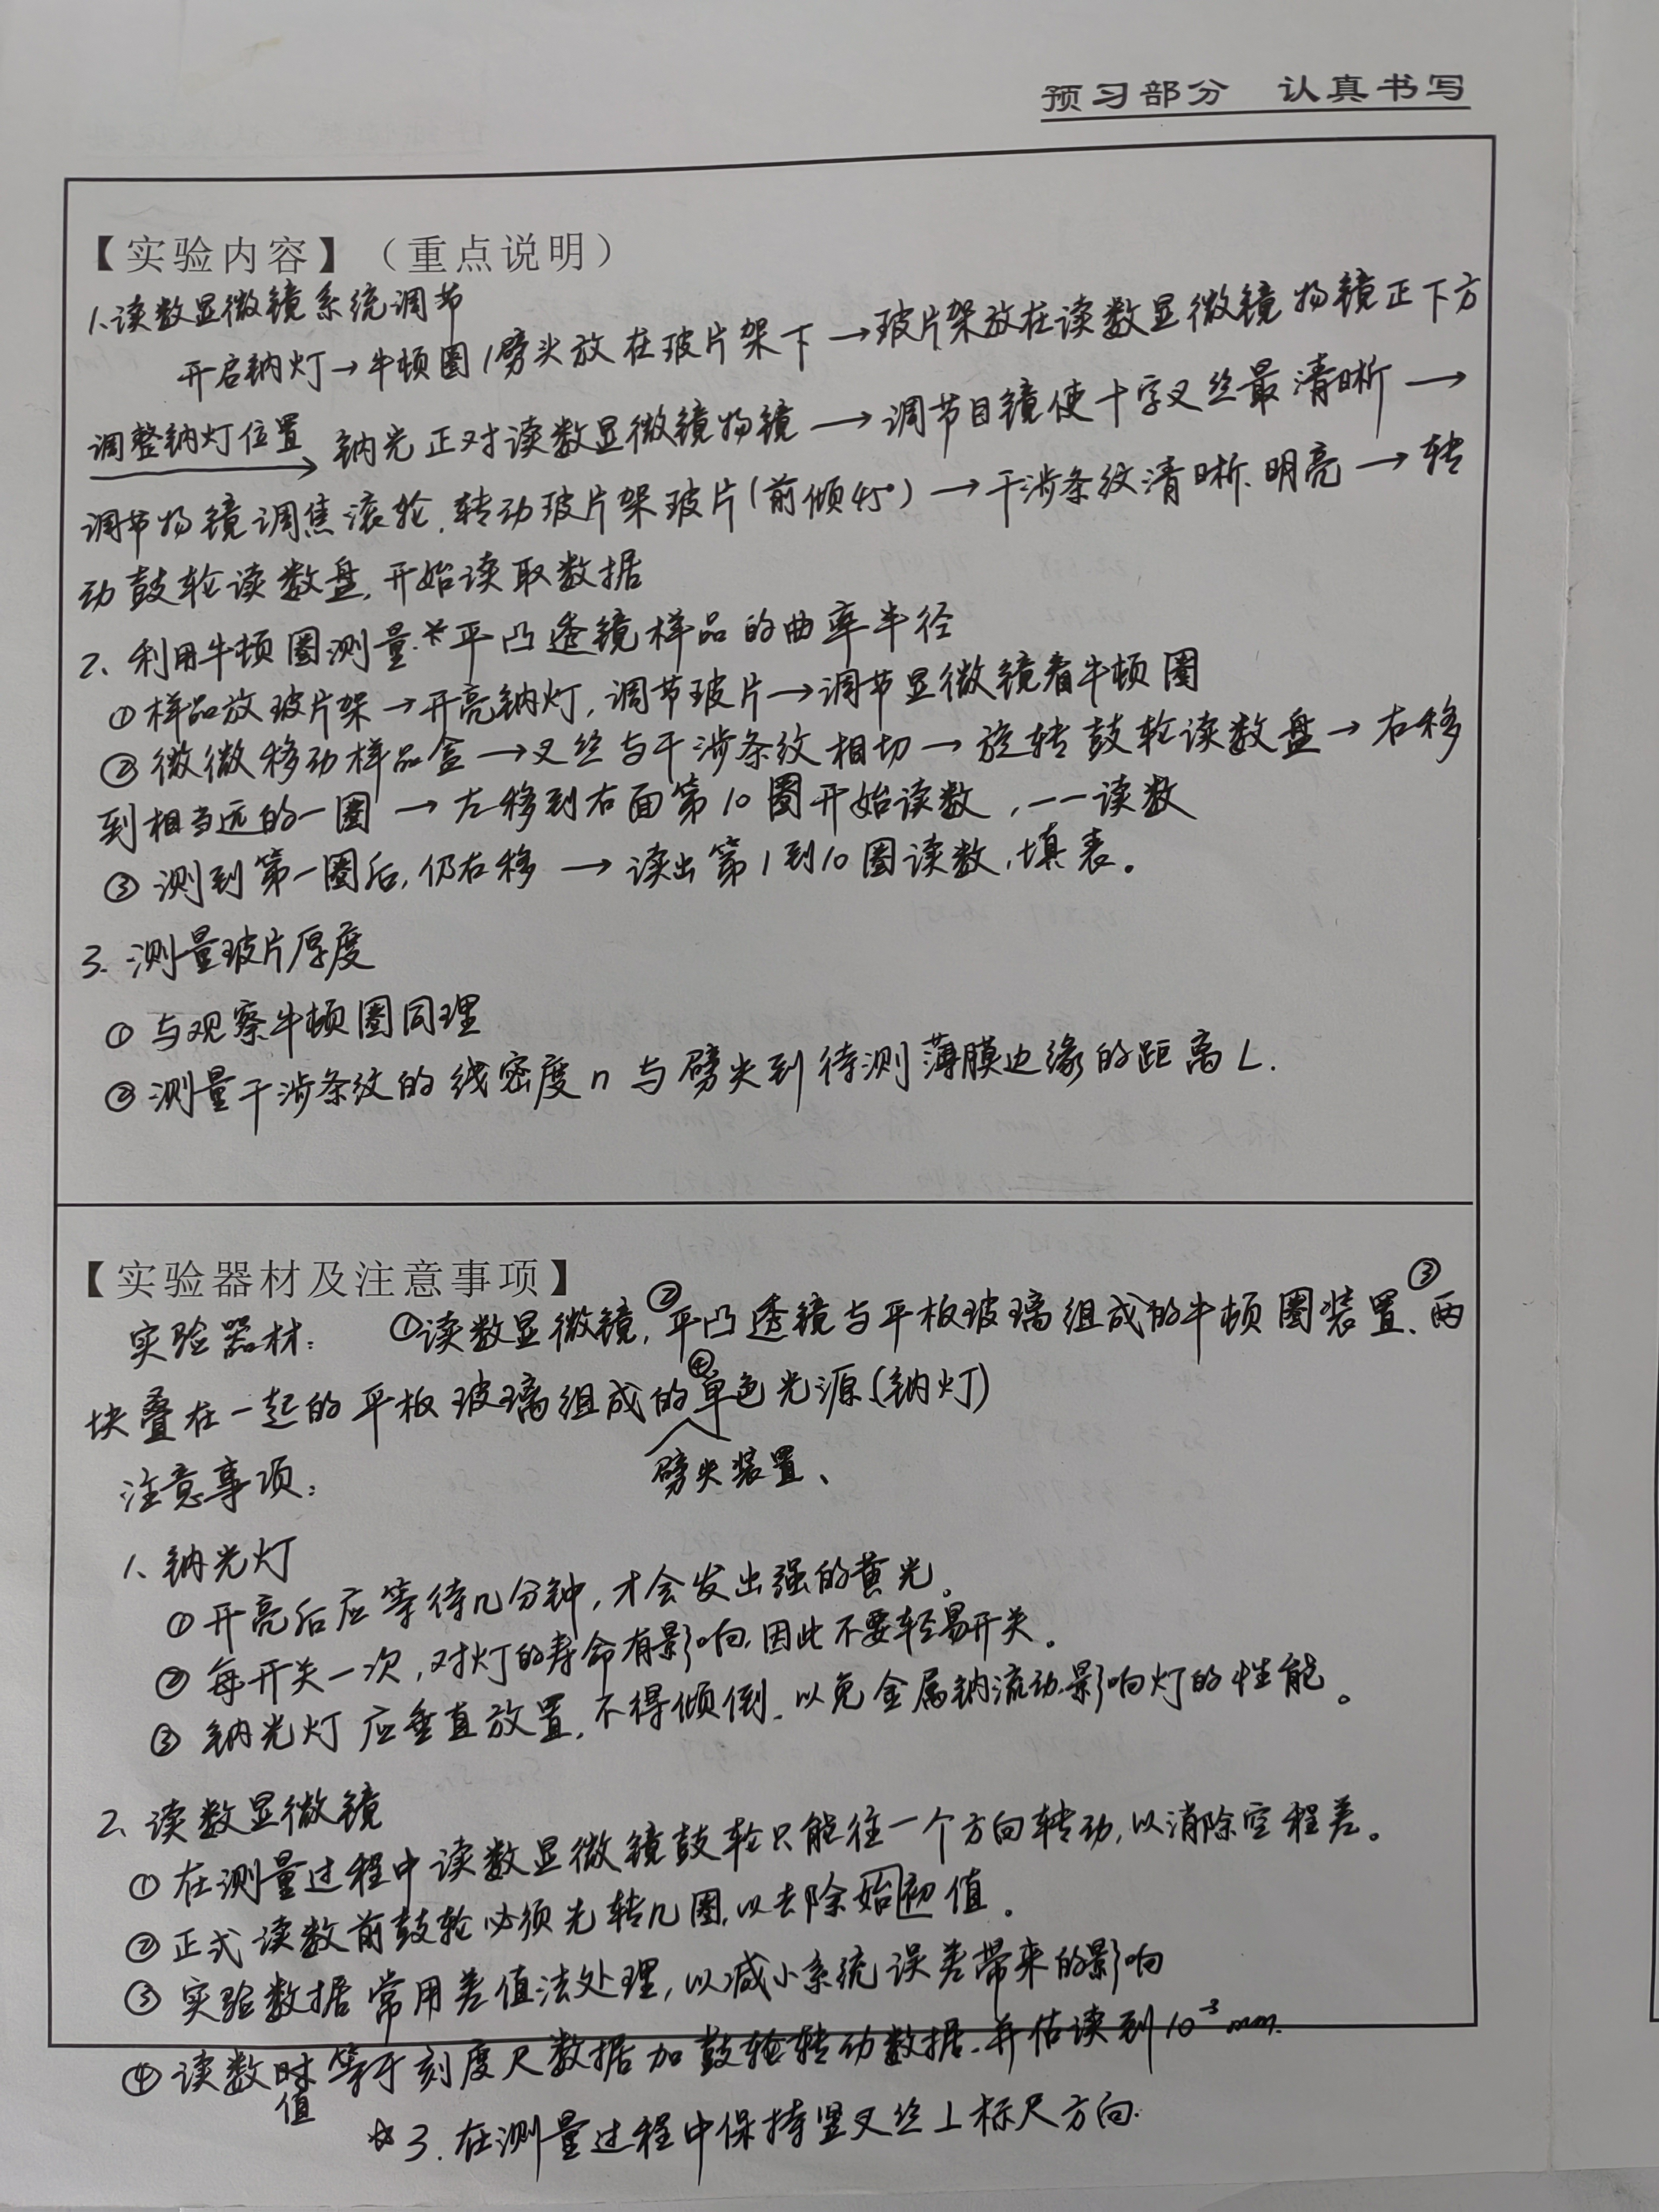 预习部分 认真书写
【实验内容】（重点说明）
1、读数显微镜系统调节
开启钠灯→牛顿圈/劈尖放在玻片架下→玻片架放在读数显微镜物镜正下方
调整钠灯位置→钠光正对读数显微镜物镜→调节目镜使十字叉丝最清晰→
调节物镜调焦滚轮,转动玻片架玻片(前倾45°)→干涉条纹清晰、明亮→转
动鼓轮读数盘,开始读取数据
2、利用牛顿圈测量*平凸透镜样品的曲率半径
①样品放玻片架→开亮钠灯,调节玻片→调节显微镜看牛顿圈
②微微移动样品盒→叉丝与干涉条纹相切→旋转鼓轮读数盘→右移
到相当远的一圈→左移到右面第10圈开始读数,一一读数
③测到第一圈后,仍右移→读出第1到10圈读数,填表。
3.测量玻片厚度
①与观察牛顿圈同理
②测量干涉条纹的线密度n与劈尖到待测薄膜边缘的距离L.
【实验器材及注意事项】
实验器材: ①读数显微镜,②平凸透镜与平板玻璃组成的牛顿圈装置、③两
块叠在一起的平板玻璃组成的劈尖装置、④单色光源(钠灯)
注意事项:
1、钠光灯
①开亮后应等待几分钟,才会发出强的黄光。
②每开关一次,对灯的寿命有影响,因此不要轻易开关。
③钠光灯应垂直放置,不得倾倒,以免金属钠流动影响灯的性能。
2、读数显微镜
①在测量过程中读数显微镜鼓轮只能往一个方向转动,以消除空程差。
②正式读数前鼓轮必须先转几圈,以去除始初值。
③实验数据常用差值法处理,以减小系统误差带来的影响
④读数时值等于刻度尺数据加鼓轮转动数据.并估读到10⁻³mm.
☆3.在测量过程中保持竖叉丝⊥标尺方向.